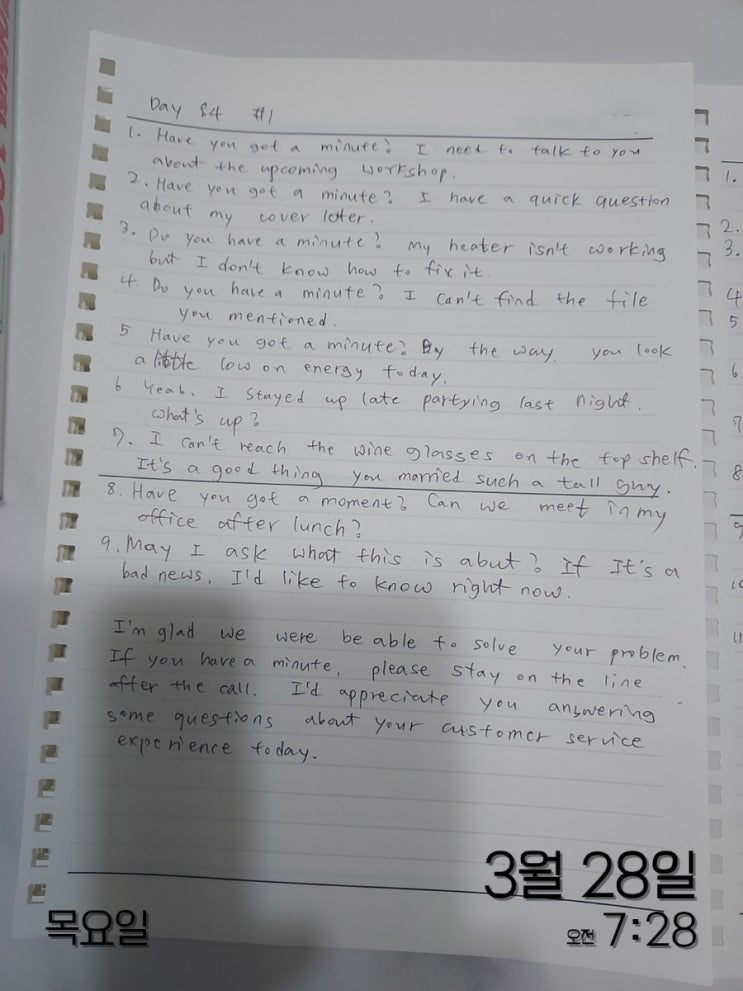 Day 84 #1
1. Have you got a minute? I need to talk to you
about the upcoming workshop.
2. Have you got a minute? I have a quick question
about my cover letter.
3. Do you have a minute? My heater isn't working
but I don't know how to fix it.
4. Do you have a minute? I can't find the file
you mentioned.
5 Have you got a minute? By the way, you look
a little low on energy today.
6. Yeah. I stayed up late partying last night.
What's up?
7. I can't reach the wine glasses on the top shelf.
It's a good thing you married such a tall guy.
8. Have you got a moment? Can we meet in my
office after lunch?
9. May I ask what this is abut? If It's a
bad news, I'd like to know right now.
I'm glad we were be able to solve your problem.
If you have a minute, please stay on the line
after the call. I'd appreciate you answering
some questions about your customer service
experience today.
1.
2.
3.
4
5
6
7
8
9
10
11
3월 28일
목요일
오전 7:28